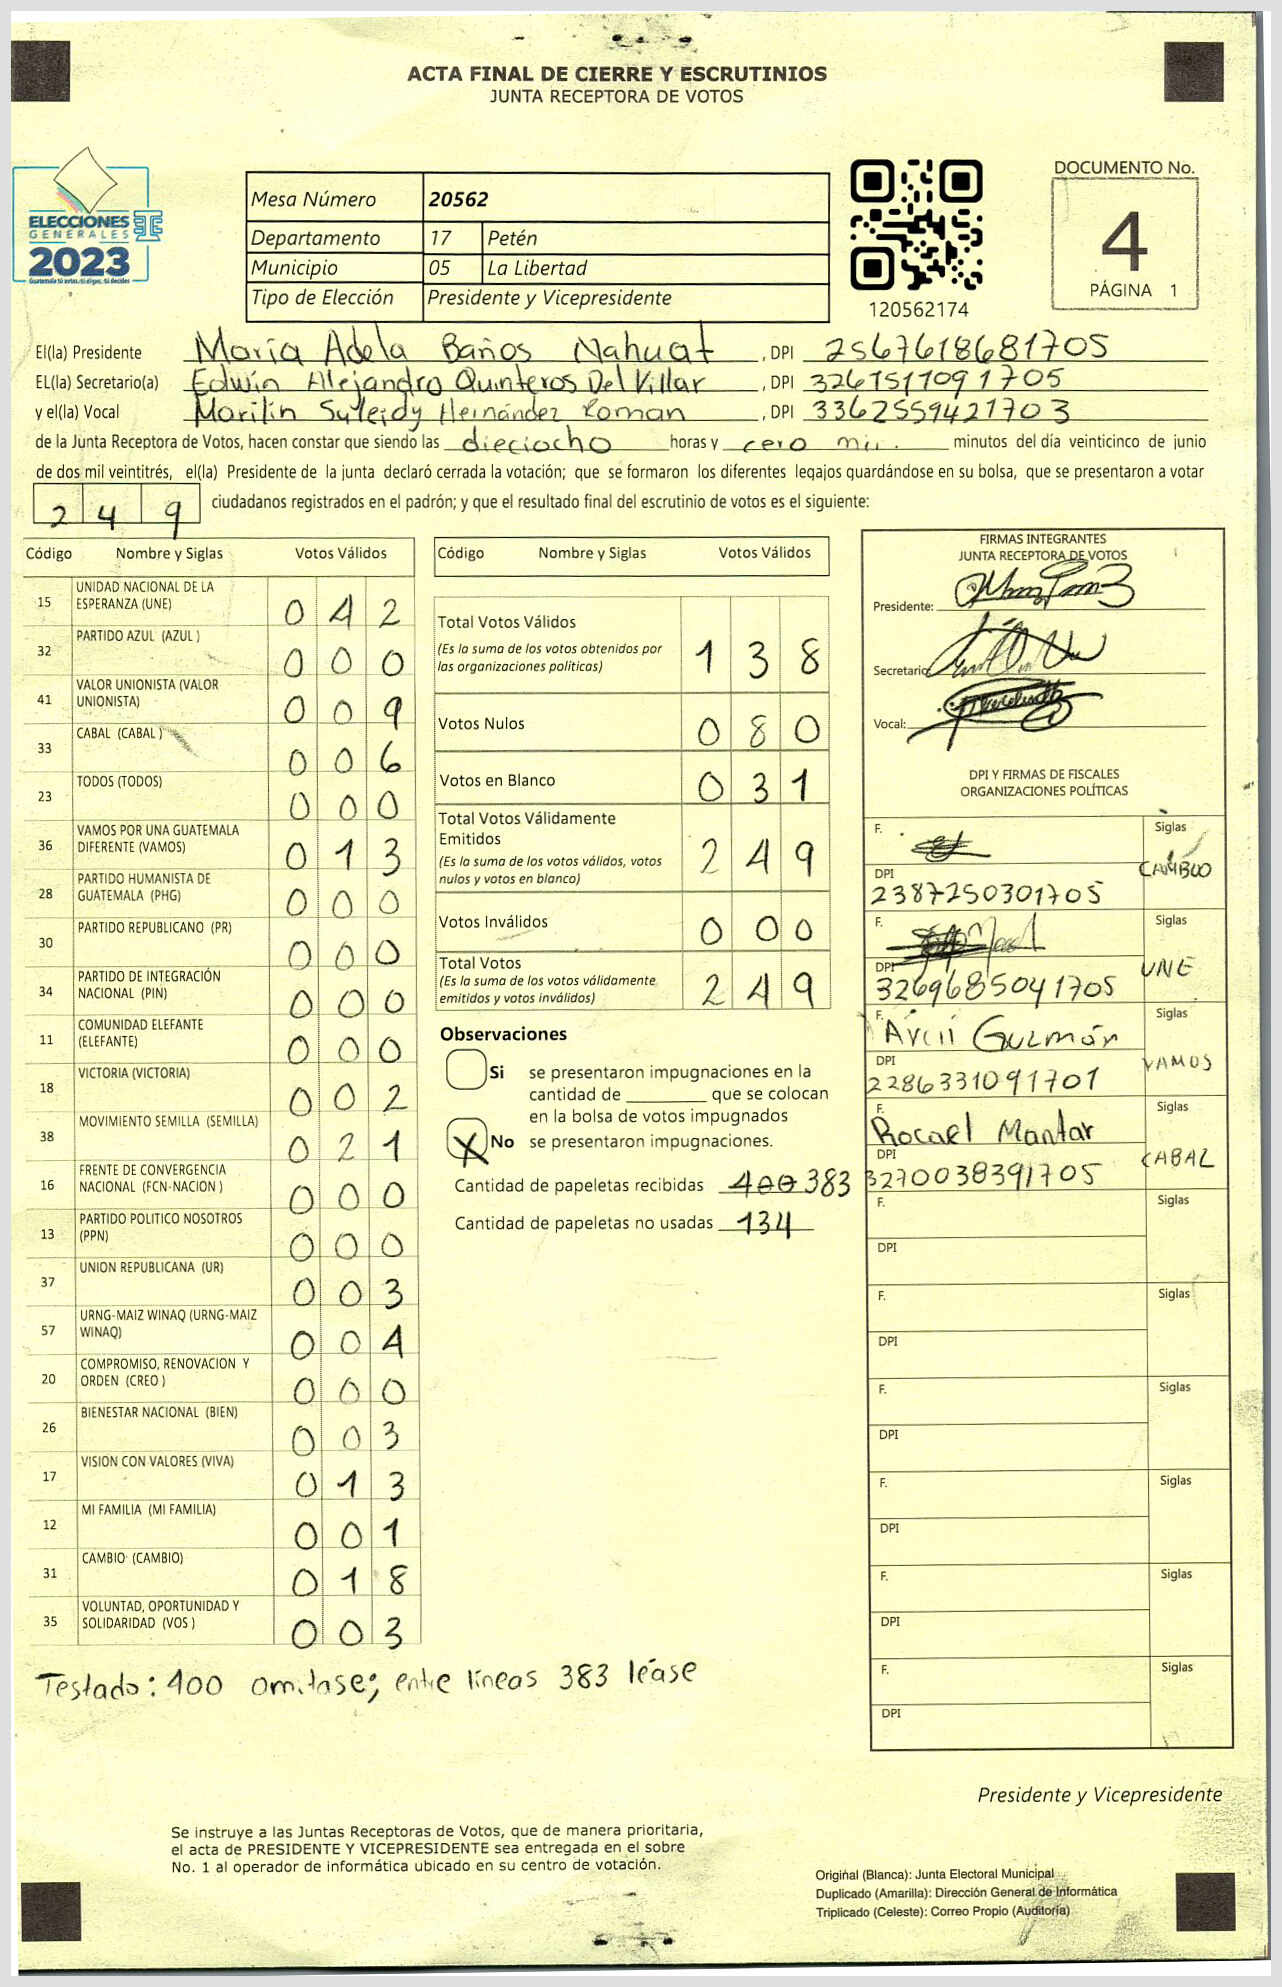 ACTA FINAL DE CIERRE Y ESCRUTINIOS
JUNTA RECEPTORA DE VOTOS
ELECCIONES
GENERALES
2023
Mesa Número 20562
Departamento 17 Petén
Municipio 05 La Libertad
Tipo de Elección Presidente y Vicepresidente
120562174
DOCUMENTO No.
4
PÁGINA 1
El(la) Presidente María Adela Baños Nahuat, DPI 2567618681705
EL(la) Secretario(a) Edwin Alejandro Quinteros Del Villar, DPI 3261511091705
y el(la) Vocal Marilin Suleidy Hernández Roman, DPI 3362559421703
de la Junta Receptora de Votos, hacen constar que siendo las dieciocho horas y cero min. minutos del día veinticinco de junio
de dos mil veintitrés, el(la) Presidente de la junta declaró cerrada la votación; que se formaron los diferentes legajos guardándose en su bolsa, que se presentaron a votar
249 ciudadanos registrados en el padrón; y que el resultado final del escrutinio de votos es el siguiente:
Código Nombre y Siglas Votos Válidos
15 UNIDAD NACIONAL DE LA ESPERANZA (UNE) 042
32 PARTIDO AZUL (AZUL ) 000
41 VALOR UNIONISTA (VALOR UNIONISTA) 009
33 CABAL (CABAL ) 006
23 TODOS (TODOS) 000
36 VAMOS POR UNA GUATEMALA DIFERENTE (VAMOS) 013
28 PARTIDO HUMANISTA DE GUATEMALA (PHG) 000
30 PARTIDO REPUBLICANO (PR) 000
34 PARTIDO DE INTEGRACIÓN NACIONAL (PIN) 000
11 COMUNIDAD ELEFANTE (ELEFANTE) 000
18 VICTORIA (VICTORIA) 002
38 MOVIMIENTO SEMILLA (SEMILLA) 021
16 FRENTE DE CONVERGENCIA NACIONAL (FCN-NACION ) 000
13 PARTIDO POLITICO NOSOTROS (PPN) 000
37 UNION REPUBLICANA (UR) 003
57 URNG-MAIZ WINAQ (URNG-MAIZ WINAQ) 004
20 COMPROMISO, RENOVACION Y ORDEN (CREO ) 000
26 BIENESTAR NACIONAL (BIEN) 003
17 VISION CON VALORES (VIVA) 013
12 MI FAMILIA (MI FAMILIA) 001
31 CAMBIO (CAMBIO) 018
35 VOLUNTAD, OPORTUNIDAD Y SOLIDARIDAD (VOS ) 003
Testado: 400 omitase; entre líneas 383 léase
Código Nombre y Siglas Votos Válidos
Total Votos Válidos 138
(Es la suma de los votos obtenidos por
las organizaciones políticas)
Votos Nulos 080
Votos en Blanco 031
Total Votos Válidamente
Emitidos 249
(Es la suma de los votos válidos, votos
nulos y votos en blanco)
Votos Inválidos 000
Total Votos 249
(Es la suma de los votos válidamente
emitidos y votos inválidos)
Observaciones
Si se presentaron impugnaciones en la
cantidad de ________ que se colocan
en la bolsa de votos impugnados
X No se presentaron impugnaciones.
Cantidad de papeletas recibidas 400 383
Cantidad de papeletas no usadas 134
FIRMAS INTEGRANTES
JUNTA RECEPTORA DE VOTOS
Presidente:
Secretario:
Vocal:
DPI Y FIRMAS DE FISCALES
ORGANIZACIONES POLÍTICAS
F. Siglas CAMBIO
DPI 2387250301705
F. Siglas UNE
DPI 3269685041705
F. Guzmán Siglas VAMOS
DPI 2286331091701
F. Rocael Mantar Siglas CABAL
DPI 3270038391705
F. Siglas
DPI
F. Siglas
DPI
F. Siglas
DPI
F. Siglas
DPI
F. Siglas
DPI
F. Siglas
DPI
Presidente y Vicepresidente
Se instruye a las Juntas Receptoras de Votos, que de manera prioritaria,
el acta de PRESIDENTE Y VICEPRESIDENTE sea entregada en el sobre
No. 1 al operador de informática ubicado en su centro de votación.
Original (Blanca): Junta Electoral Municipal
Duplicado (Amarilla): Dirección General de Informática
Triplicado (Celeste): Correo Propio (Auditoría)